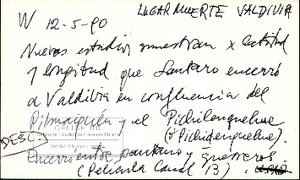 W 12-5-90 LUGAR MUERTE VALDIVIA
Nuevos estudios muestran x latitud
y longitud que Lautaro encerró
a Valdivia en confluencia del
Pilmaiquén y el Pichilenquehue
(o Pichidenguehue)
DESC.
Encerró entre pantano y guerreros
(Película Canal 13)